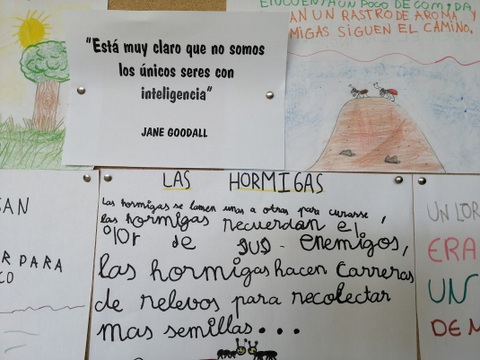 "Está muy claro que no somos
los únicos seres con
inteligencia"
JANE GOODALL
ENCUENTRA UN POCO DE COMIDA
UN RASTRO DE AROMA Y
SIGUEN EL CAMINO.
LAS HORMIGAS
Las hormigas se lamen unas a otras para curarse,
las hormigas recuerdan el
olor de sus - enemigos,
las hormigas hacen carreras
de relevos para recolectar
mas semillas...
PARA
UN
ERA
UN
DE